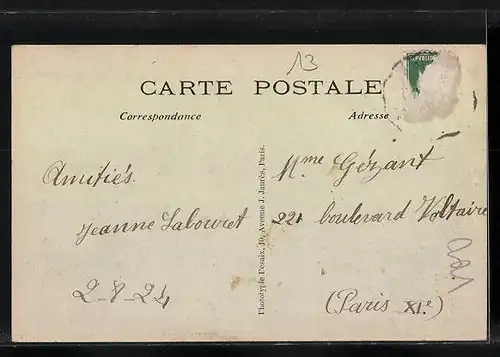 13
CARTE POSTALE
Correspondance
Adresse
Amitiés.
Jeanne Labouret
2-8-24
Phototypie Desaix, 10, Avenue J. Jaurès, Paris.
Mme Gézant
221 boulevard Voltaire
221
(Paris XIe)